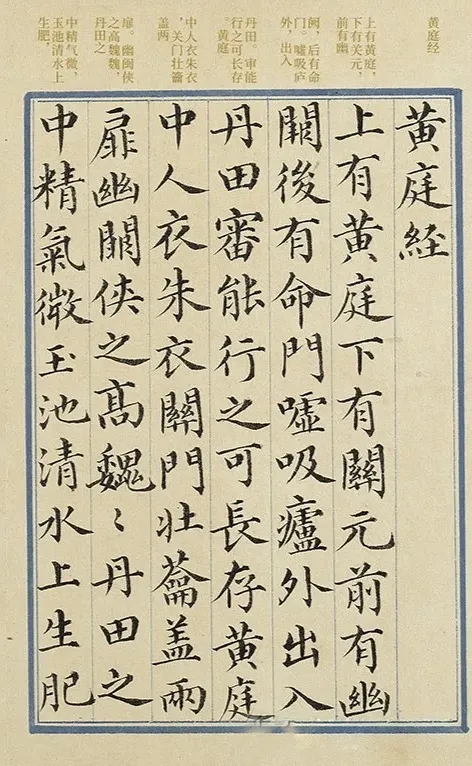 黄庭经
上有黄庭，
下有关元，
前有幽
阙，后有命
门。嘘吸庐
外，出入
丹田。审能
行之可长存
。黄庭
中人衣朱衣
，关门壮籥
盖两
扉。幽阙侠
之高巍巍，
丹田之
中精气微，
玉池清水上
生肥，
黄庭経
上有黄庭下有關元前有幽
闕後有命門噓吸廬外出入
丹田審能行之可長存黄庭
中人衣朱衣關門壯蘥盖兩
扉幽闕俠之高巍〻丹田之
中精氣微玉池清水上生肥